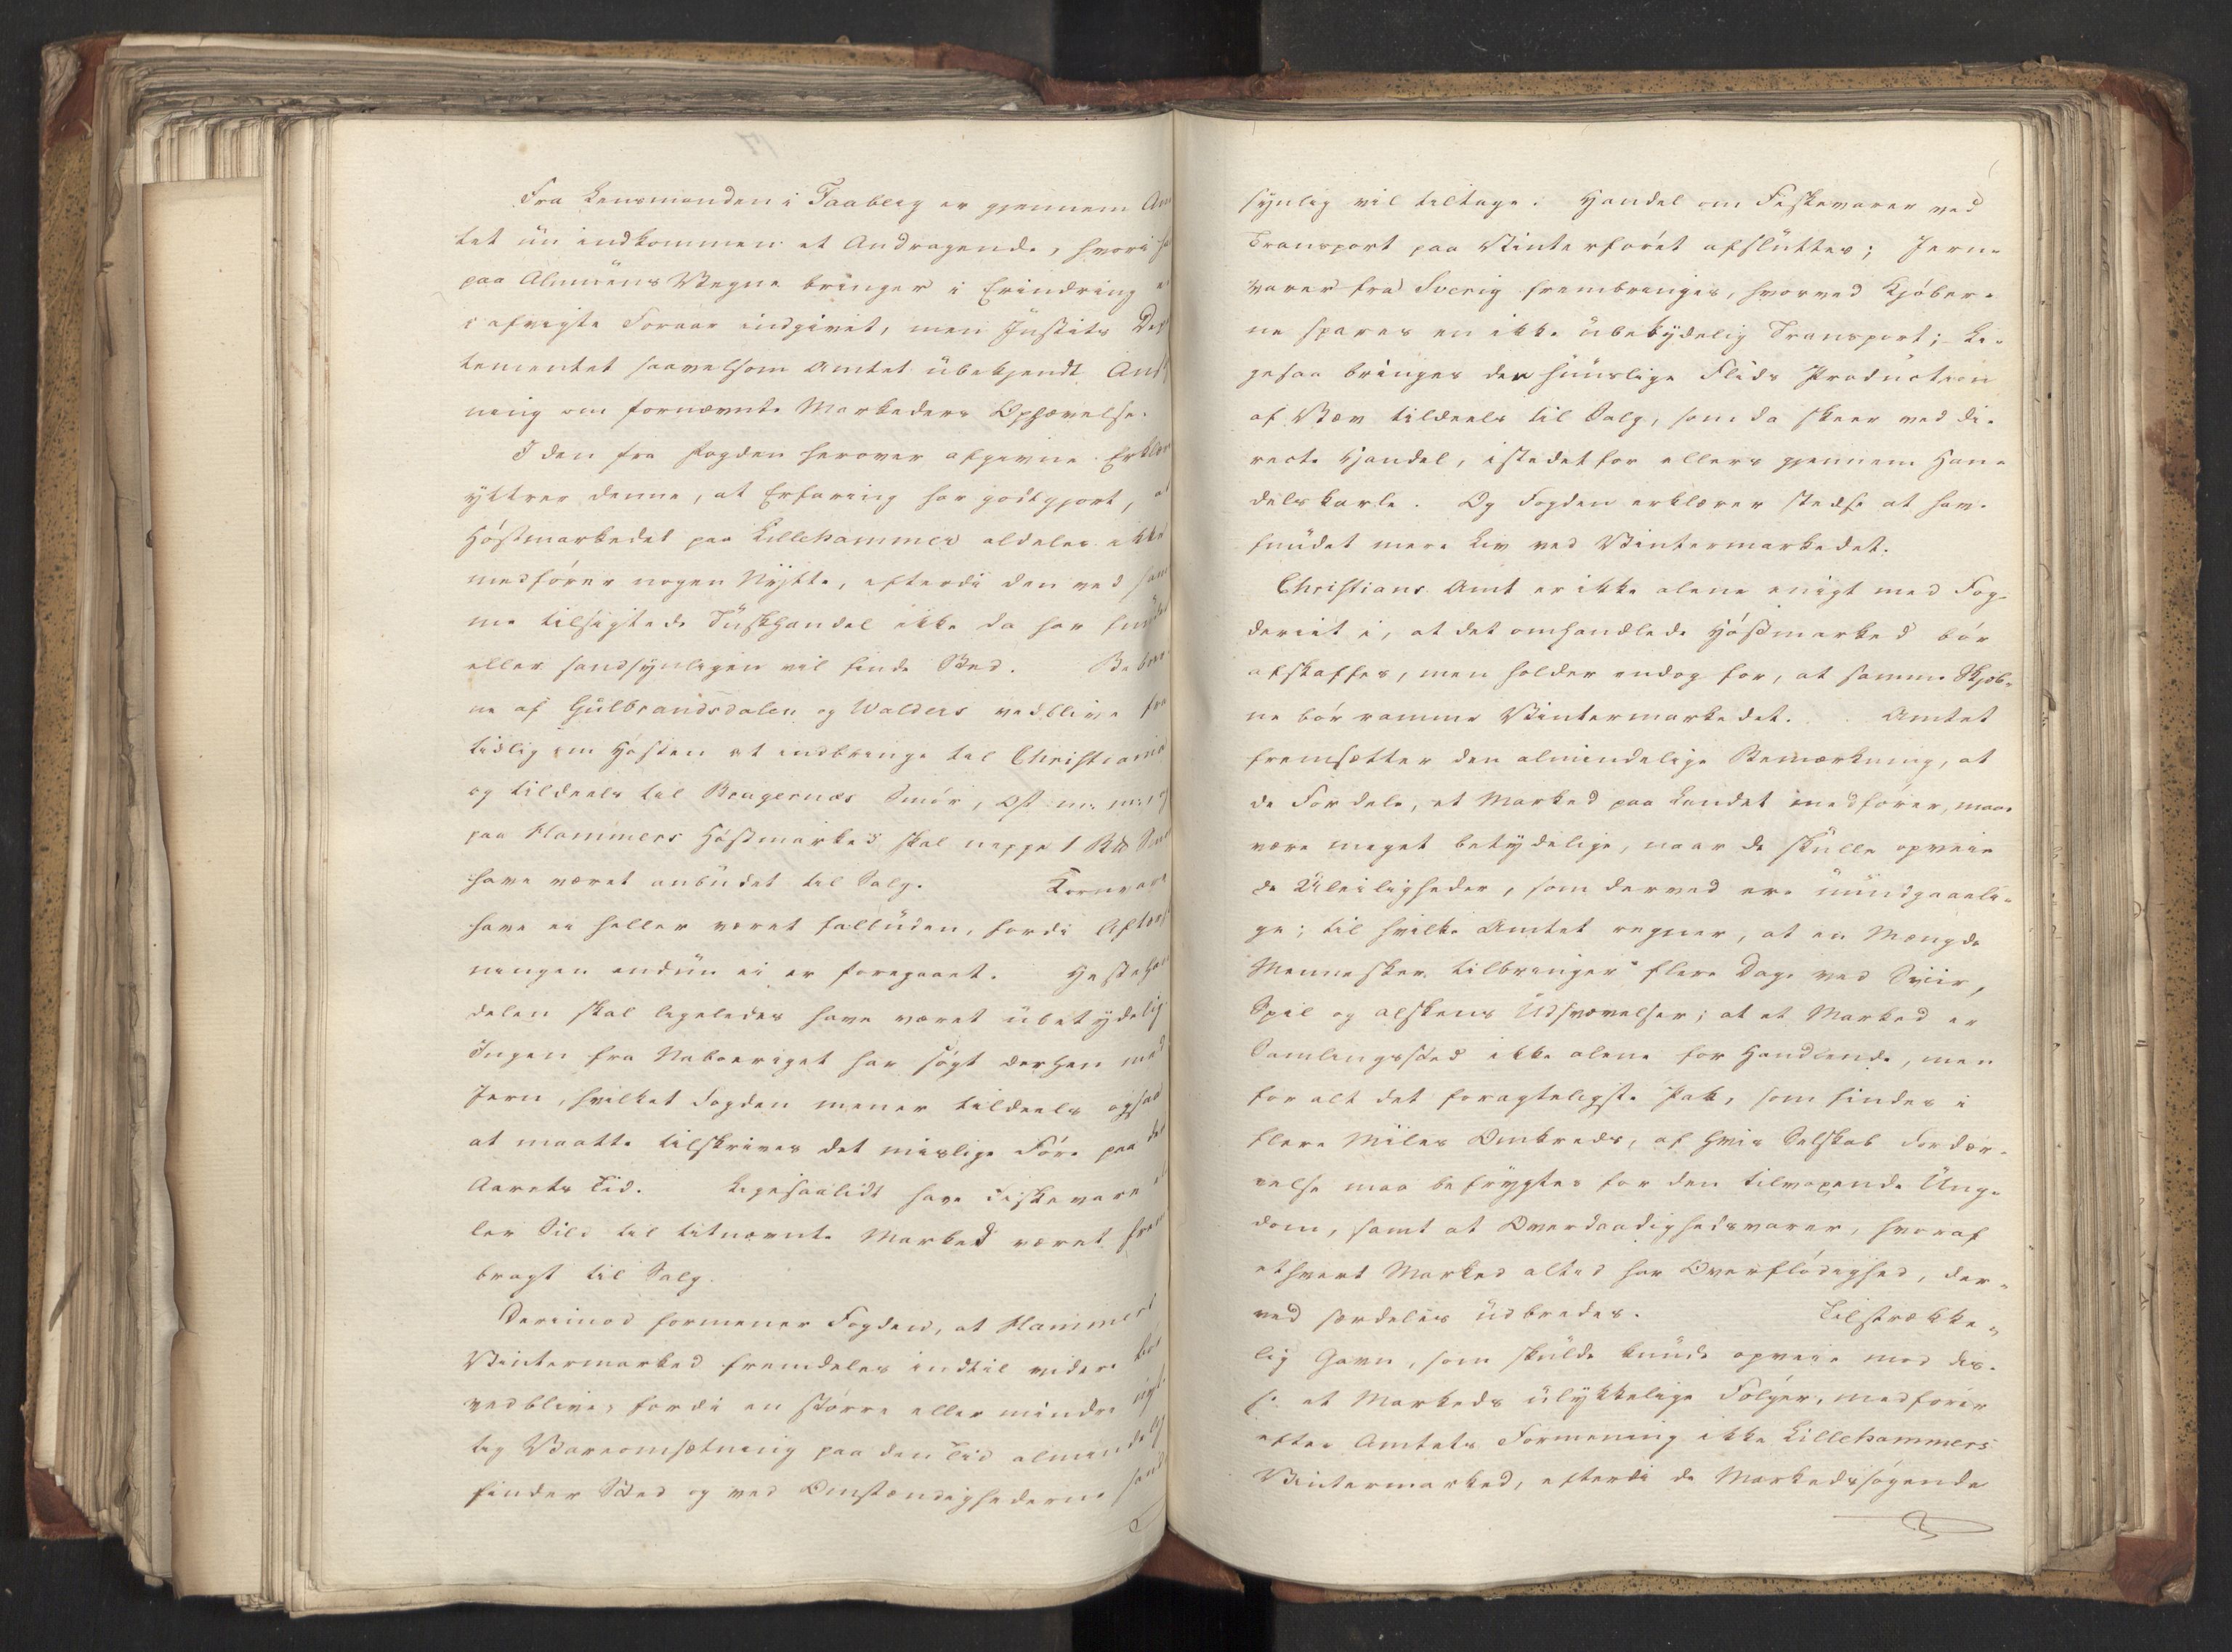 Fra Lensmanden i Faaberg er gjennem Am
tet nu indkommen et Andragende, hvori ha
paa Almuens Vegne bringer i Erindring e
i afvigte Foraar indgivet, men Justits Dep
tementet saavelsom Amtet ubekjendt Ansø
ning om fornævnte Markeders Ophævelse.
I den fra Fogden herover afgivne Erklæ
yttrer denne, at Erfaring har godtgjort, at
Høstmarkedet paa Lillehammer aldeles ikke
medfører nogen Nytte, efterdi den ved sam
me tilsigtede Tuskhandel ikke da har fundet
eller sandsynligen vil finde Sted. Beboer
ne af Gulbrandsdalen og Walders vedblive fra
tidlig om Høsten at indbringe til Christiania
og tildeels til Bragernæs Smør, Ost m: m:, og
paa Hammers Høstmarked skal neppe 1 B℔ Smør
have været anbudet til Salg. Kornvare
have ei heller været falbuden, fordi Aftærs
ningen endnu ei er foregaaet. Hestehan
delen skal ligeledes have været ubetydelig
Ingen fra Naboeriget har søgt derhen med
Jern, hvilket Fogden mener tildeels ogsaa
at maatte tilskrives det mislige Føre paa det
Aarets Tid. Ligesaalidt have Fiskevare el
ler Sild til bemeldte Marked været frem
bragt til Salg.
Derimod formener Fogden, at Hammers
Vintermarked fremdeles indtil videre bør
vedblive, fordi en større eller mindre nyt
tig Vareomsætning paa den Tid almindelig
finder Sted og ved Omstændighederne sand
synlig vil tiltage. Handel om Fiskevarer ved
Transport paa Vinterføret afsluttes; Jern-
varer fra Sverig frembringes, hvorved Kjøber-
ne spares en ikke ubetydelig Transport; Li-
gesaa bringes den huuslige Flids Production
af Væv tildeels til Salg, som da skeer ved di-
recte Handel, istedetfor ellers gjennem Han-
delskarle. Og Fogden erklærer stedse at have
fundet mere Liv ved Vintermarkedet.
Christians Amt er ikke alene enigt med Fog-
deriet i, at det omhandlede Høstmarked bør
afskaffes, men holder endog for, at samme Skjæb-
ne bør ramme Vintermarkedet. Amtet
fremsætter den almindelige Bemærkning, at
de Fordele, et Marked paa Landet medfører, maae
være meget betydelige, naar de skulle opveie
de Uleiligheder, som derved ere uundgaaeli-
ge; til hvilke Amtet regner, at en Mængde
Mennesker tilbringer flere Dage ved Sviir,
Spil og alskens Udsvævelser; at et Marked er
Samlingssted ikke alene for Handlende, men
for alt det foragteligste Pak, som findes i
flere Miles Omkreds, af hvis Selskab Fordær-
velse maa befrygtes for den tilvoxende Ung-
dom, samt at Overdaadighedsvarer, hvoraf
ethvert Marked altid har Overflødighed, der-
ved særdeles udbredes. Tilstrække-
lig Gavn, som skulde kunde opveie mod dis-
se et Markeds ulykkelige Følger, medfører
efter Amtets Formening ikke Lillehammers
Vintermarked, efterdi de Markedssøgende